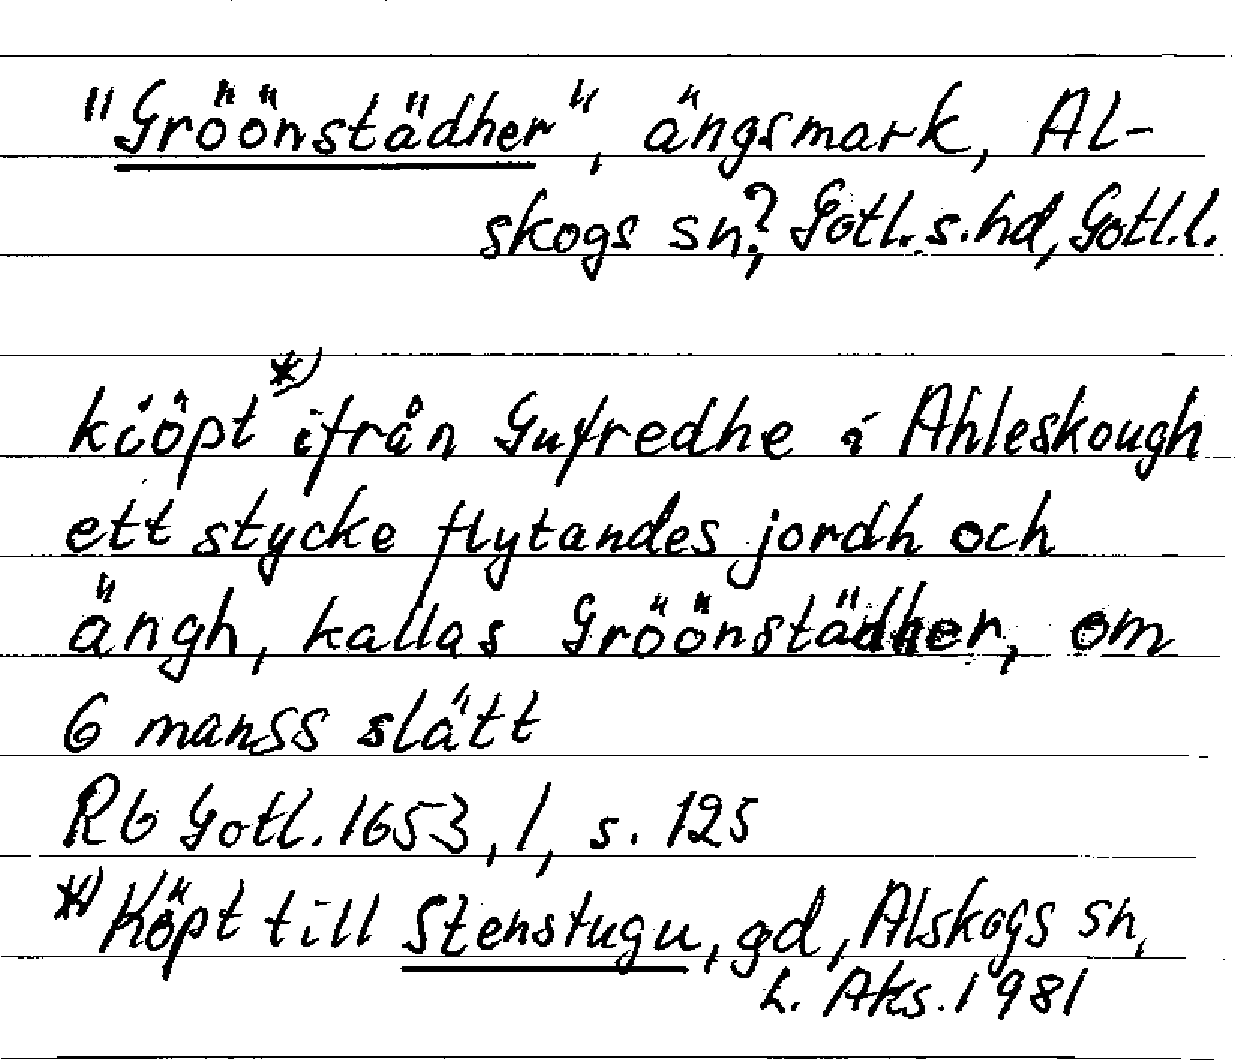 "Gröönstädher", ängsmark, Al-
skogs sn?, Gotl. s. hd, Gotl. l.
kiöpt *) ifrån Gufredhe i Ahleskough
ett stycke flytandes jordh och
ängh, kallas Gröönstädher, om
6 manss slätt
Rb Gotl. 1653, 1, s. 125
*) Köpt till Stenstugu, gd, Alskogs sn,
L. Aks. 1981